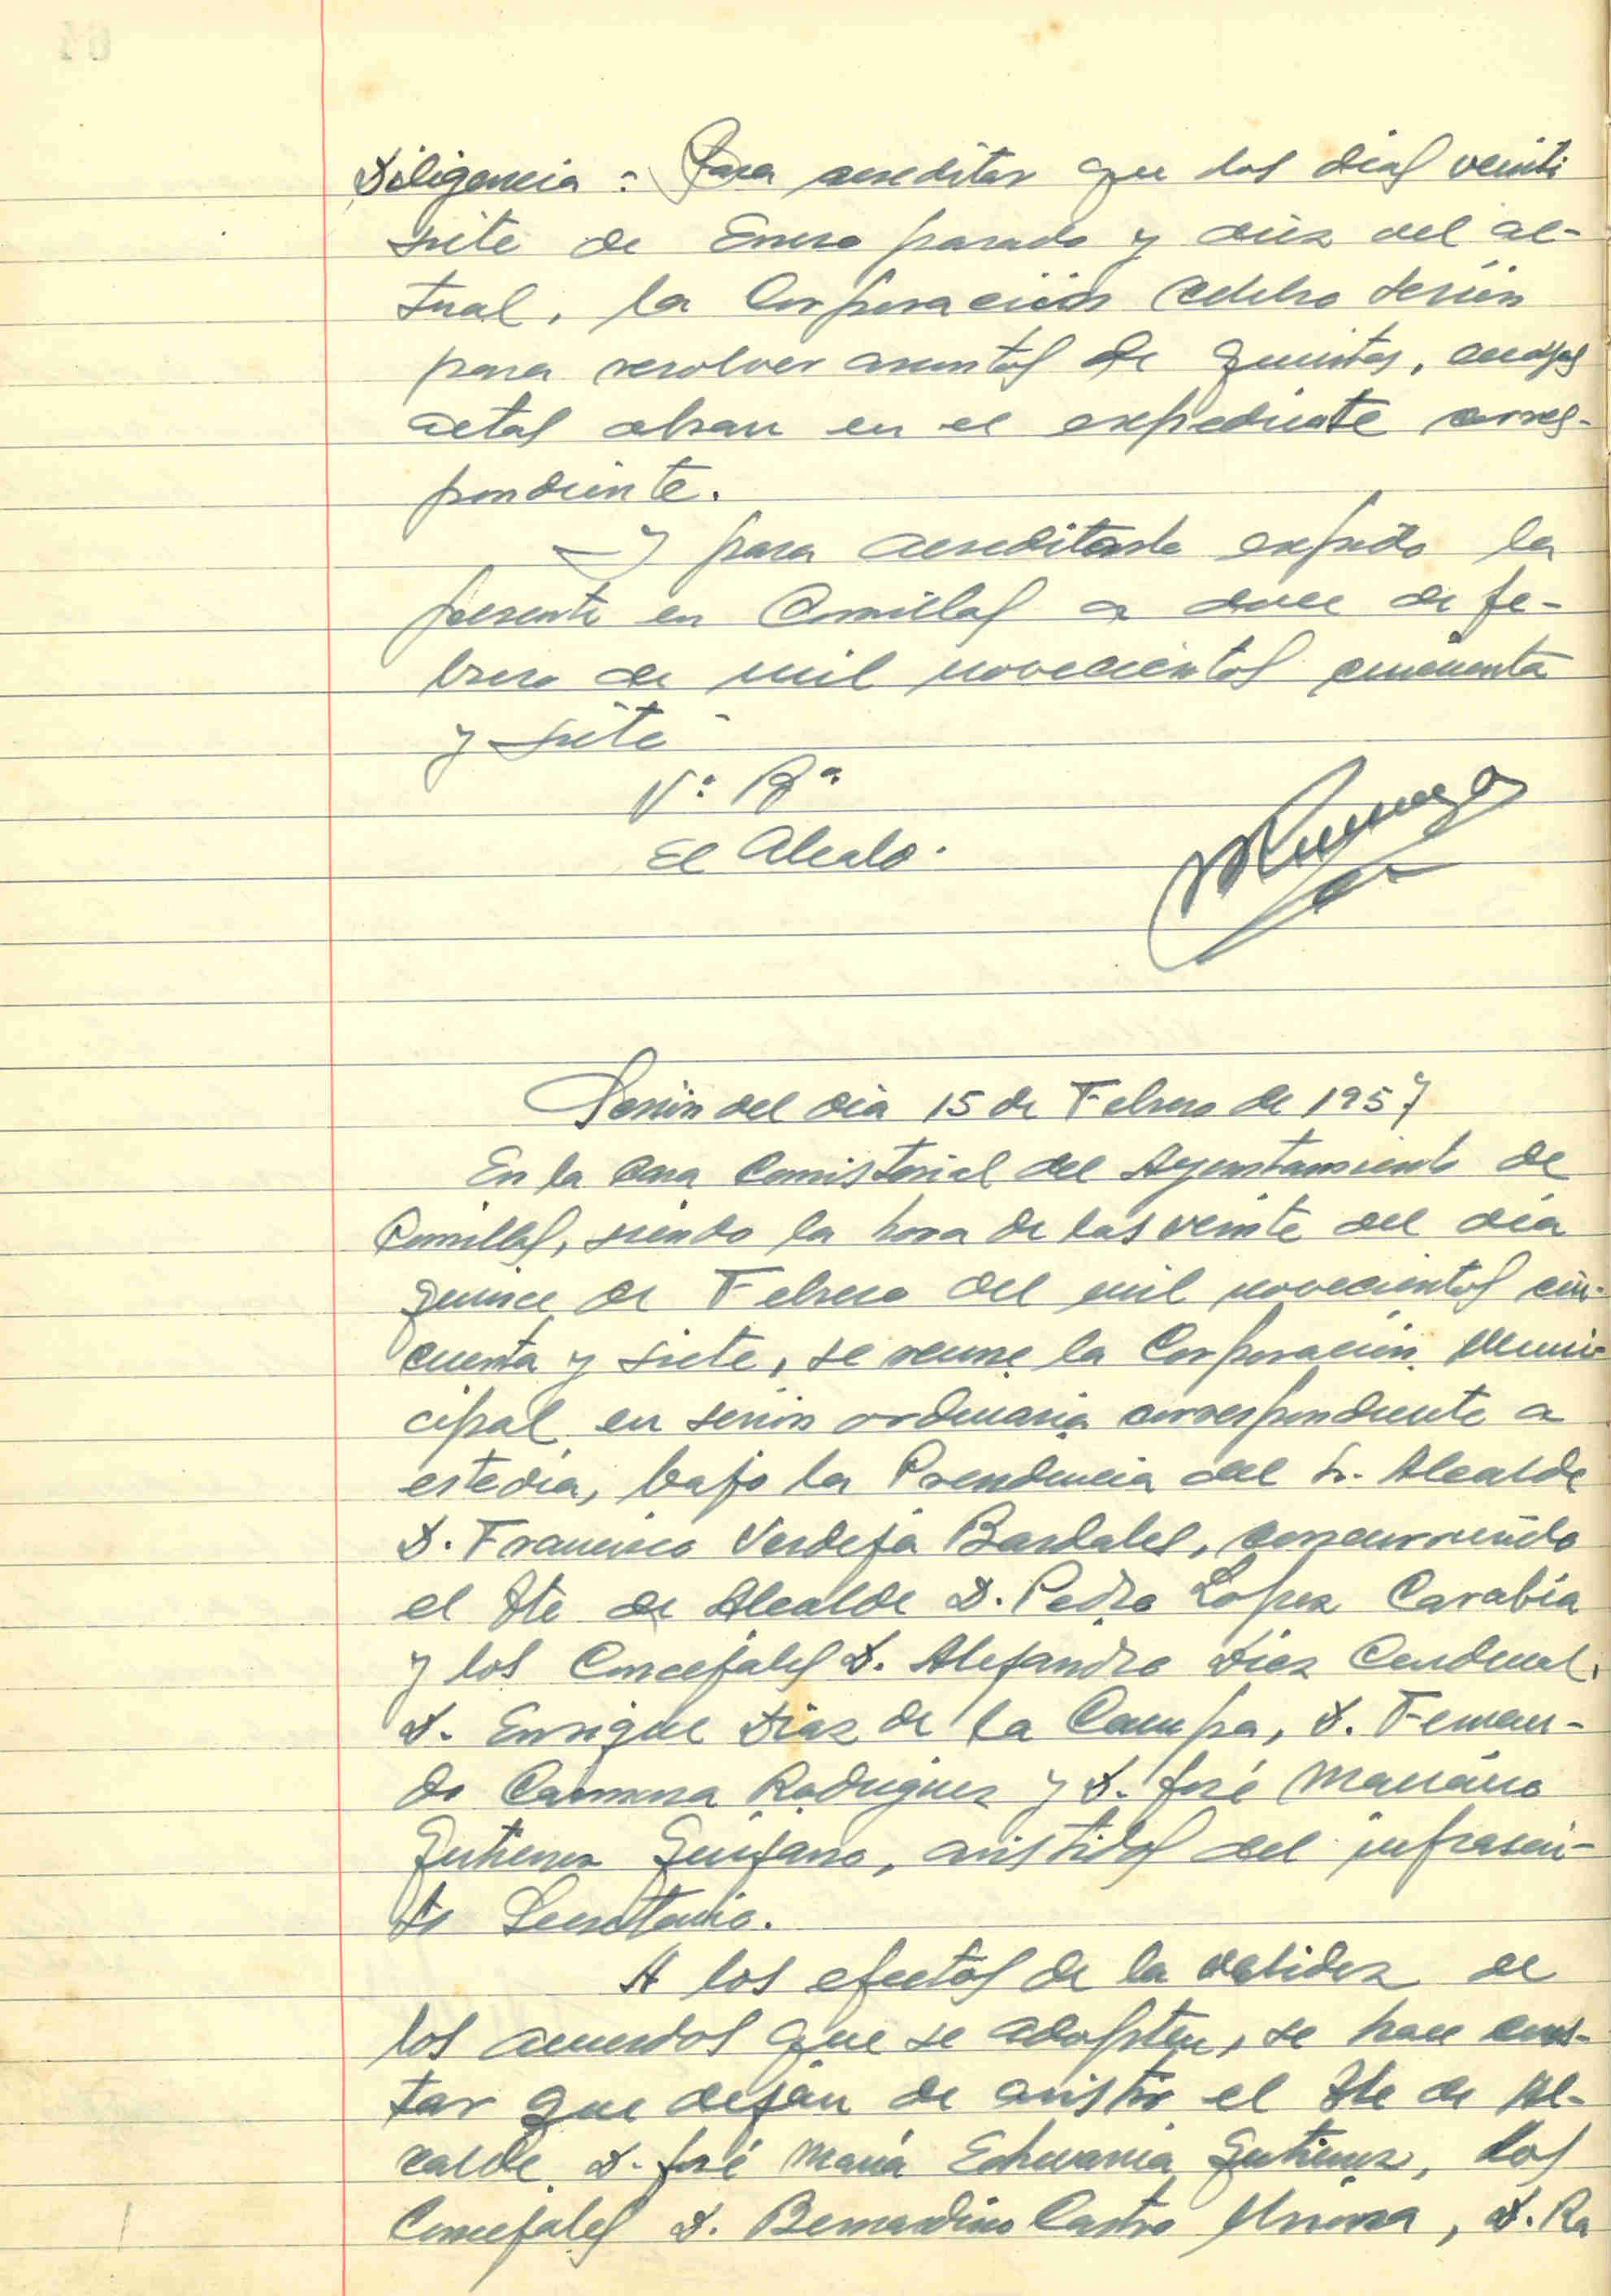 Diligencia : Para acreditar que los dias veinti
siete de Enero pasado y diez del ac-
tual, la Corporación celebro sesión
para resolver asuntos de quintas, cuyas
actas obran en el expediente corres-
pondiente.
Y para acreditarlo expido la
presente en Comillas a doce de fe-
brero de mil novecientos cincuenta
y siete
Vº Bº
El Alcalde.
Sesión del dia 15 de Febrero de 1957
En la Casa Consistorial del Ayuntamiento de
Comillas, siendo la hora de las veinte del dia
quince de Febrero del mil novecientos cin-
cuenta y siete, se reune la Corporación Muni-
cipal en sesión ordinaria correspondiente a
este dia, bajo la Presidencia del Sr. Alcalde
D. Francisco Verdeja Bardales, concurriendo
el Tte de Alcalde D. Pedro Lopez Carabia
y los Concejales D. Alejandro Diez Cardenal,
D. Enrique Diaz de la Campa, D. Fernan-
do Rodriguez y D. José Macario
Gutierrez Quijano, asistidos del infrascri-
to Secretario.
A los efectos de la validez de
los acuerdos que se adopten, se hace cons-
tar que dejan de asistir el Tte de Al-
calde D. José Maria Echevarria Gutierrez, los
Concejales D. Bernardino Castro , D. Ra